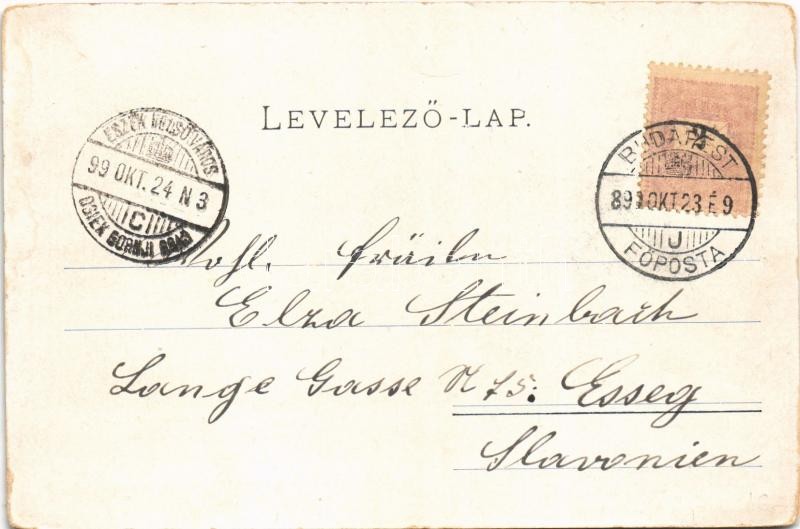 LEVELEZŐ-LAP.
ESZÉK FELSŐVÁROS
99 OKT. 24 N 3
C
OSIEK GORNJI GRAD
2
BUDAPEST
899 OKT. 23 É 9
J
FŐPOSTA
Wohl. Fräulen
Elza Steinbach
Lange Gasse N 75. Esseg
Slavonien